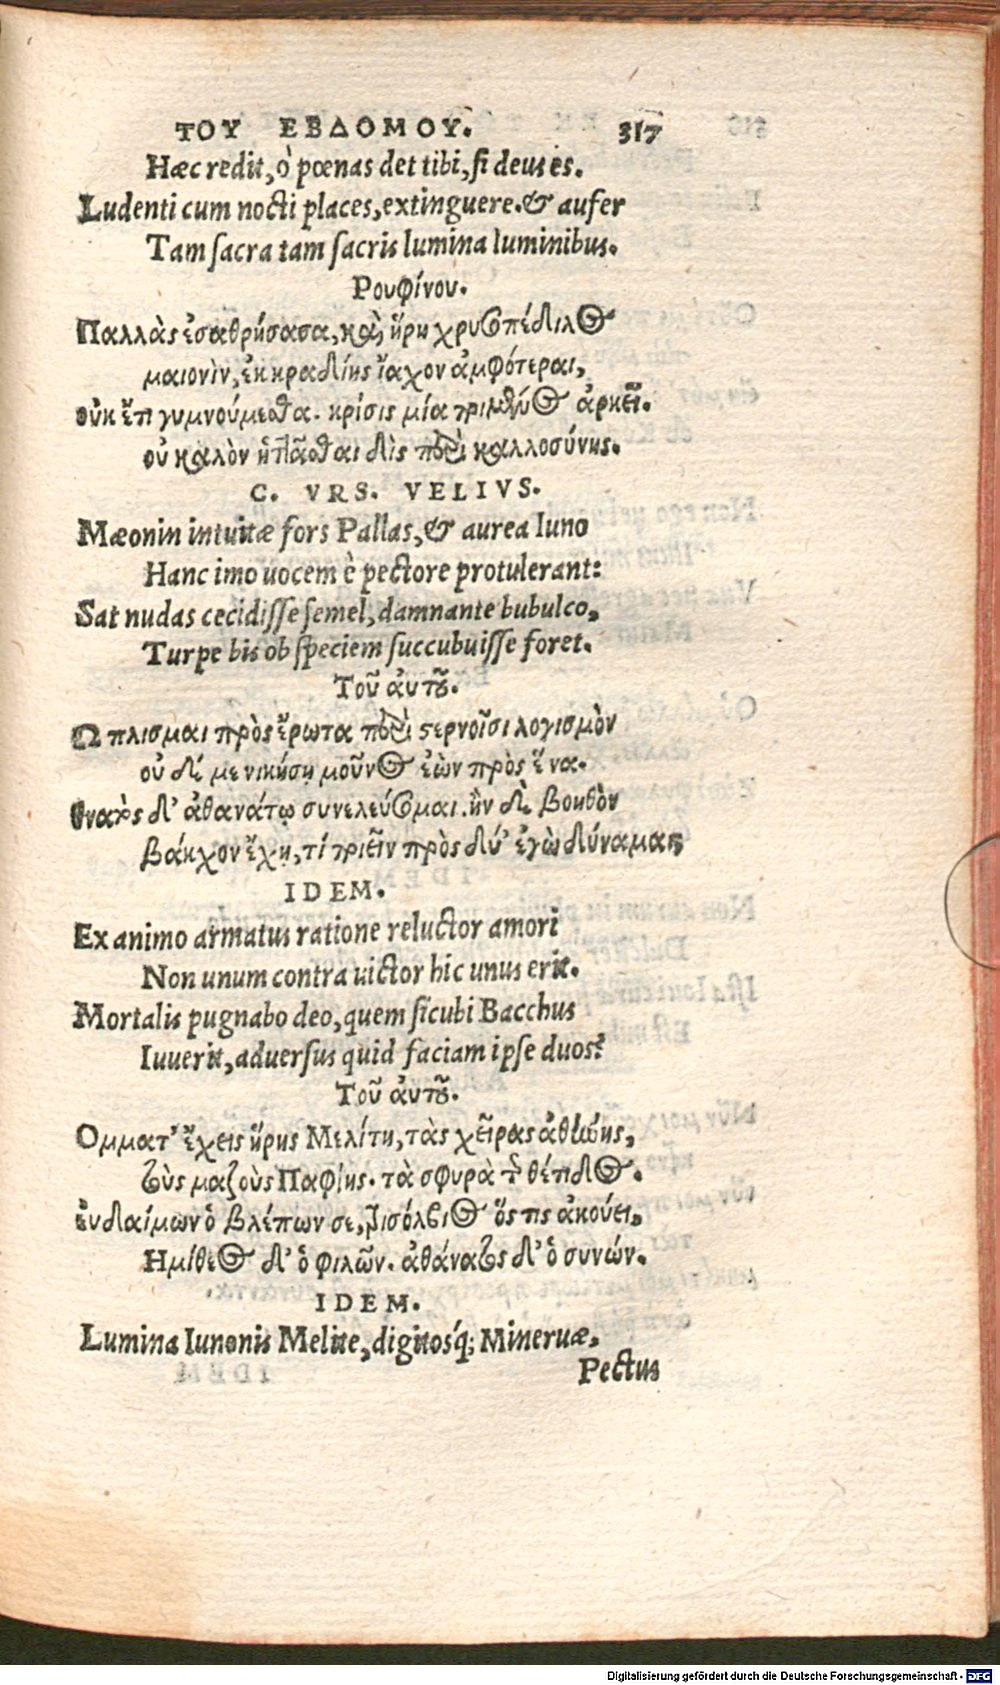 ΤΟΥ ΕΒΔΟΜΟΥ. 317
Hæc redit, ò pœnas det tibi, si deus es.
Ludenti cum nocti places, extinguere. & aufer
Tam sacra tam sacris lumina luminibus.
Ρουφίνου.
Παλλὰς ἐσαθρήσασα, καὶ ἥρη χρυσοπέδιλος
μαιονὶν, ἐκ κραδίης ἴαχον ἀμφότεραι,
οὐκ ἔτι γυμνούμεσθα. κρίσις μία ποιμένος ἀρκεῖ.
οὐ καλὸν ἡττᾶσθαι δὶς περὶ καλλοσύνης.
C. VRS. VELIVS.
Mæonin intuitæ fors Pallas, & aurea Iuno
Hanc imo uocem è pectore protulerant:
Sat nudas cecidisse semel, damnante bubulco,
Turpe bis ob speciem succubuisse foret.
Τοῦ ἀυτοῦ.
Ωπλισμαι πρὸς ἔρωτα περὶ στερνοῖσι λογισμὸν
οὐ δέ με νικήσῃ μοῦνος ἐὼν πρὸς ἕνα.
θνατὸς δ' ἀθανάτῳ συνελεύσομαι. ἢν δὲ βοηθὸν
βάκχον ἔχῃ, τί πρὸς δύ' ἐγὼ δύναμαι;
IDEM.
Ex animo armatus ratione reluctor amori
Non unum contra uictor hic unus erit.
Mortalis pugnabo deo, quem sicubi Bacchus
Iuuerit, aduersus quid faciam ipse duos?
Τοῦ ἀυτοῦ.
Ομματ' ἔχεις ἥρης Μελίτη, τὰς χεῖρας ἀθήνης,
τοὺς μαζοὺς Παφίης. τὰ σφυρὰ τῆς θέτιδος.
ἐυδαίμων ὁ βλέπων σε, τρισόλβιος ὅς τις ἀκούει,
Ημίθεος δ' ὁ φιλῶν. ἀθάνατος δ' ὁ συνών.
IDEM.
Lumina Iunonis Melite, digitosq́; Mineruæ,
Pectus
Digitalisierung gefördert durch die Deutsche Forschungsgemeinschaft - DFG